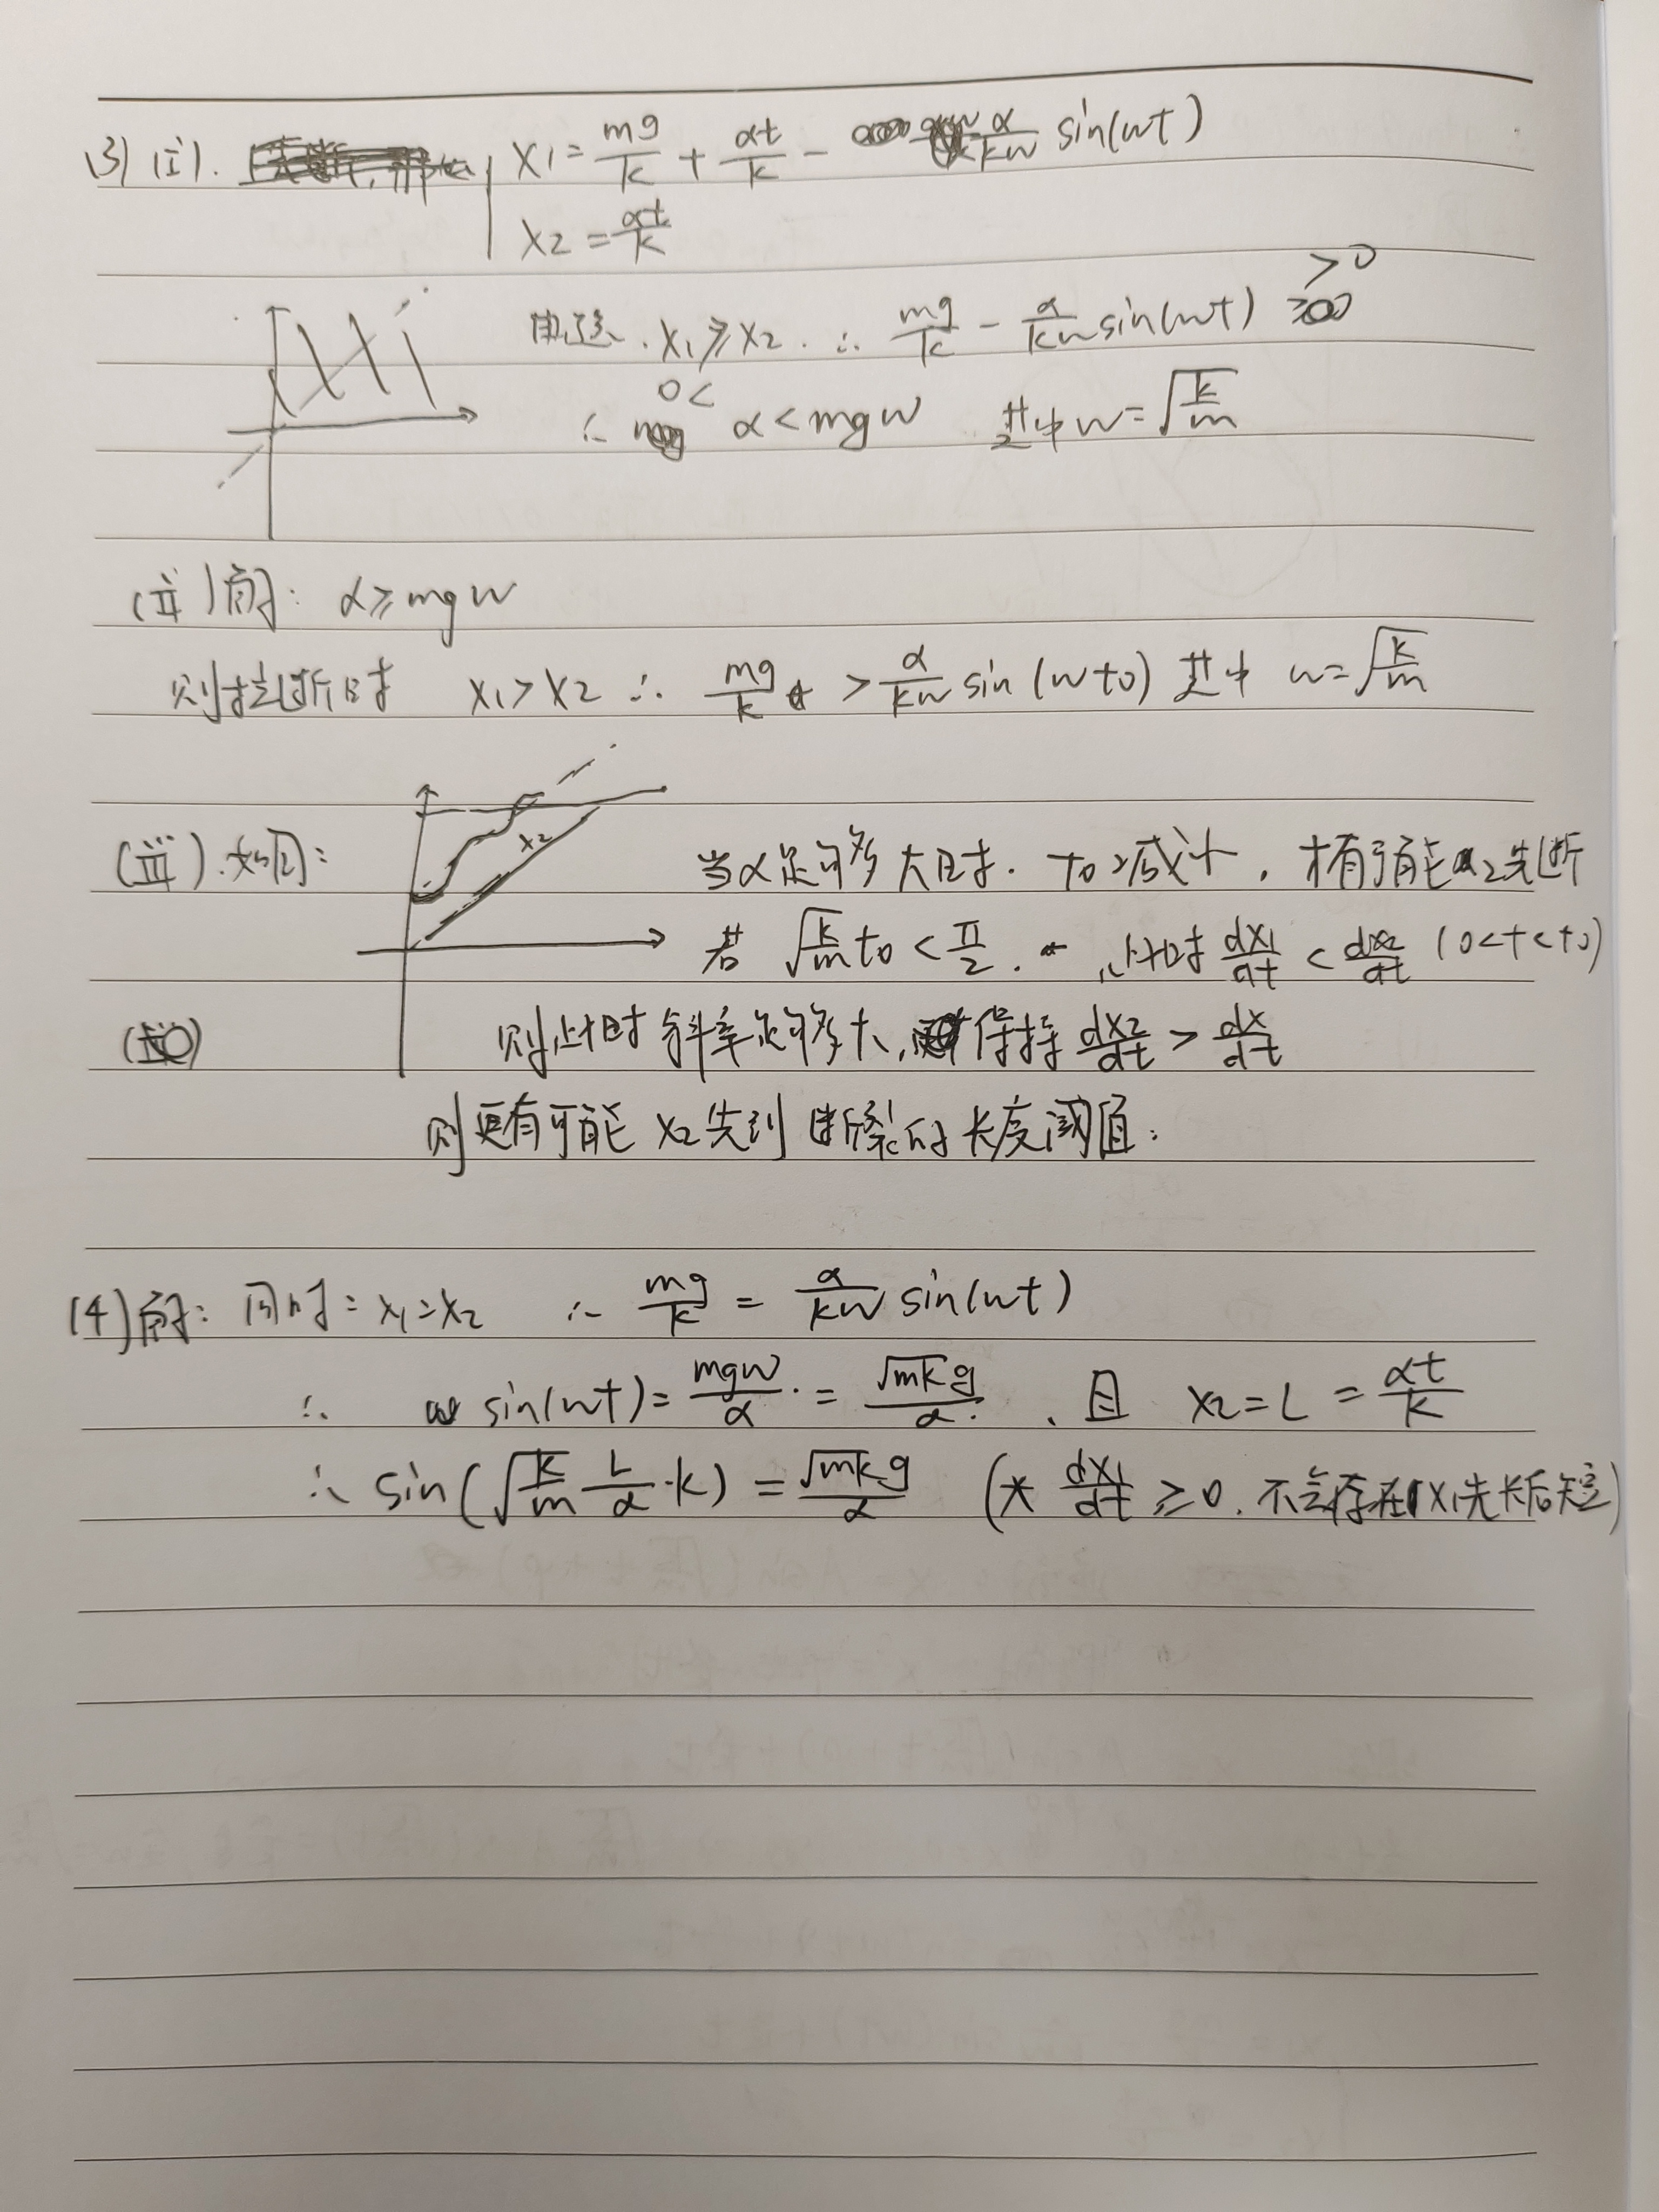 (3) (i). x₁ = mg/k + αt/k - α/kw sin(wt)
x₂ = αt/k
x₁ ≥ x₂ ∴ mg/k - α/kw sin(wt) > 0
∴ 0 < α < mgw 其中 w = √(k/m)
(ii) 解: α ≥ mgw
则拉断时 x₁ > x₂ ∴ mg/k > α/kw sin(wt₀) 其中 w = √(k/m)
(iii). 如图: x₂ 当α足够大时. t₀ 减小, 才有可能 2先断
若 √(k/m) t₀ < π/2. 此时 dx₁/dt < dx₂/dt (0<t<t₀)
则此时斜率足够大, 保持 dx₂/dt > dx/dt
则更有可能 x₂先到断裂的长度阈值.
(4) 解: 同时: x₁ = x₂ ∴ mg/k = α/kw sin(wt)
∴ sin(wt) = mgw/α = √mk g/α. 且 x₂ = L = αt/k
∴ sin(√(k/m) L/α · k) = √mk g/α (* dx₁/dt ≥ 0. 不会存在x₁先长后短)